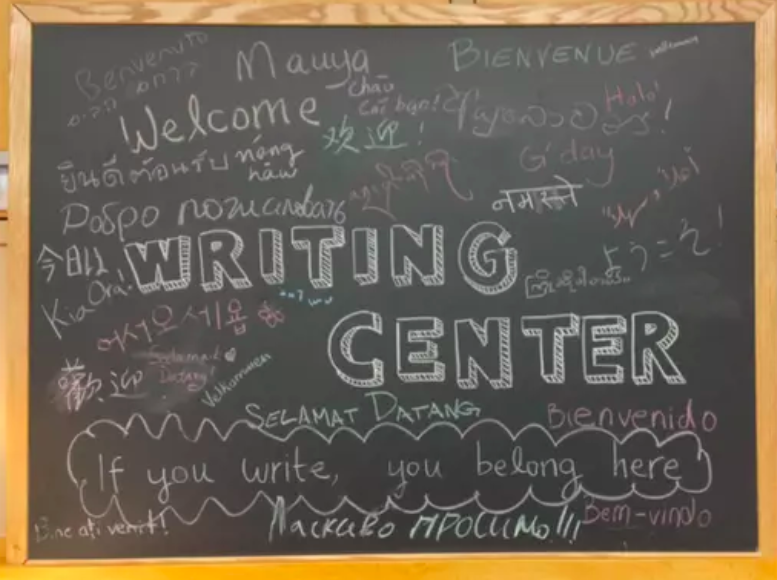 Benvenuto
Mauya
BIENVENUE
Welcome
chào
các bạn!
Hola!
欢迎!
G'day
ยินดีต้อนรับ
नमस्ते
今日は
WRITING
ようこそ!
Kia Ora!
어서오세요
CENTER
歡迎
Selamat
Datang!
Velkommen
SELAMAT DATANG
Bienvenido
If you write, you belong here
Bine ați venit!
Ласкаво просимо!!!
Bem-vindo